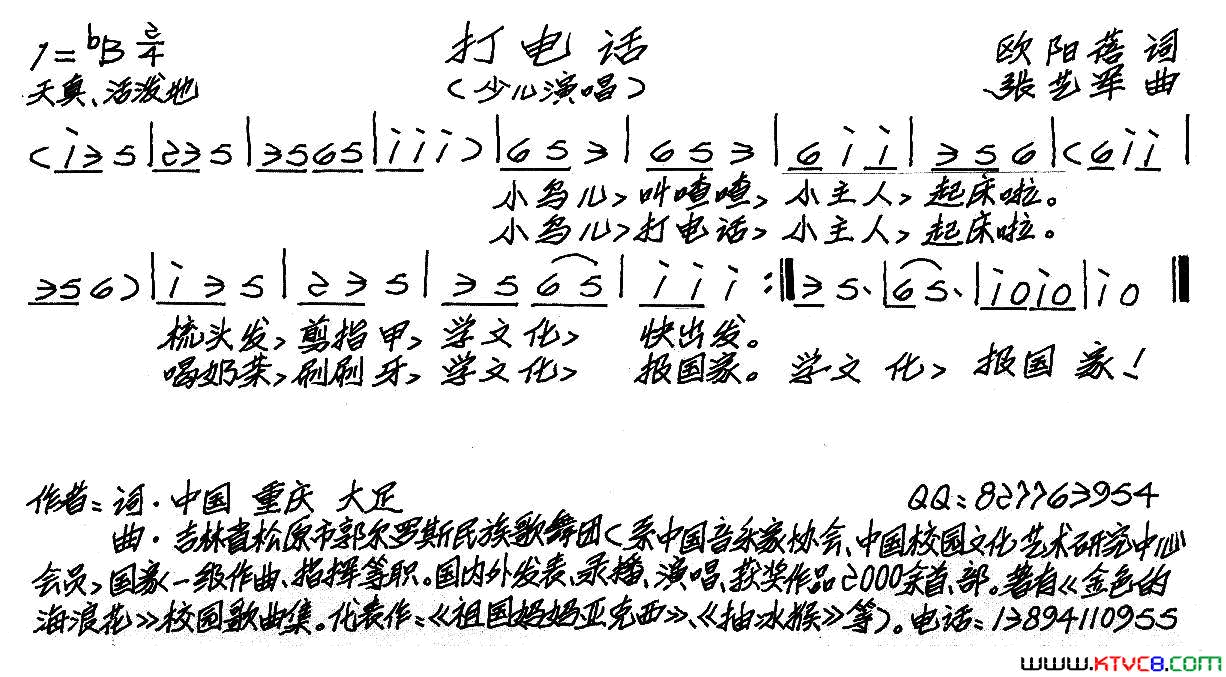 1=bB 2/4 打电话 欧阳蓓 词
天真、活泼地 (少儿演唱) 张艺军 曲
(i35|235|3565|iii)|653|653|6ii|356|(6ii|
小鸟儿,叫喳喳,小主人,起床啦。
小鸟儿,打电话,小主人,起床啦。
356)|i35|235|3565|iii:‖35.|65.|i0i0|i0‖
梳头发,剪指甲,学文化,快出发。
喝奶茶,刷刷牙,学文化,报国家。学文化,报国家!
作者:词·中国 重庆 大足 QQ:827763954
曲·吉林省松原市郭尔罗斯民族歌舞团(系中国音乐家协会、中国校园文化艺术研究中心
会员,国家一级作曲、指挥等职。国内外发表、录播、演唱、获奖作品2000余首、部。著有《金色的
海浪花》校园歌曲集。代表作:《祖国妈妈亚克西》、《抽冰猴》等)。电话:13894110955
www.KTVC8.com